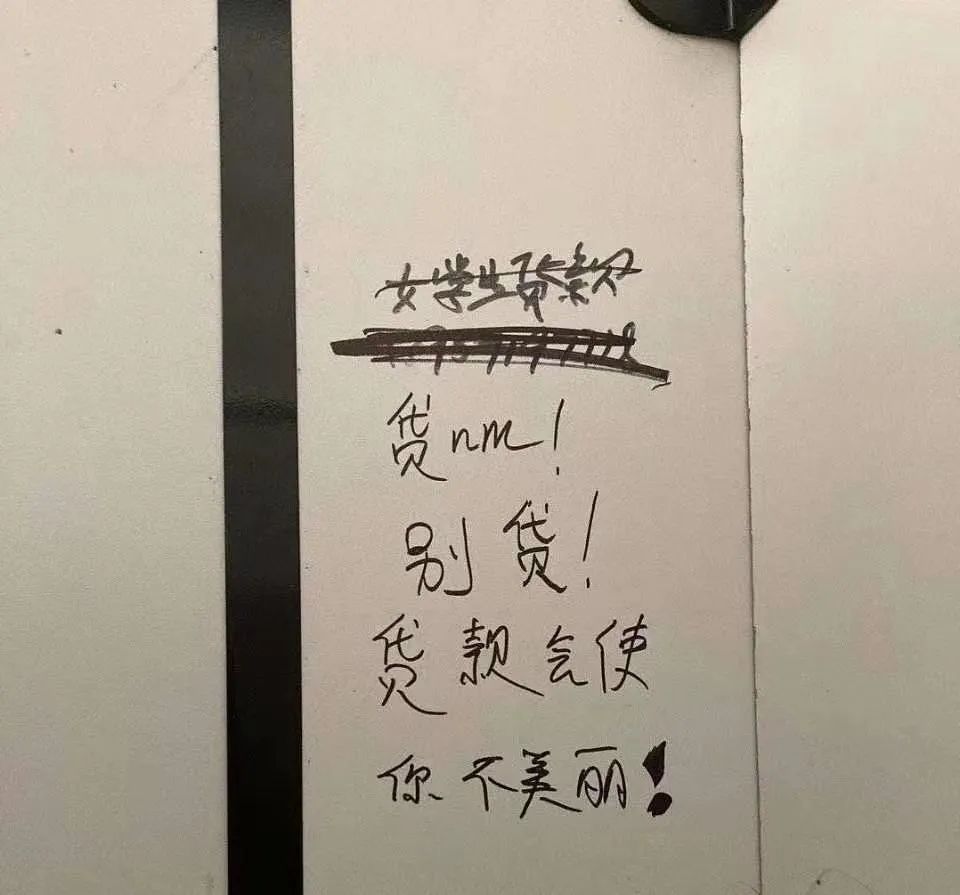 女学生贷款
贷nm!
别贷!
贷款会使
你不美丽!